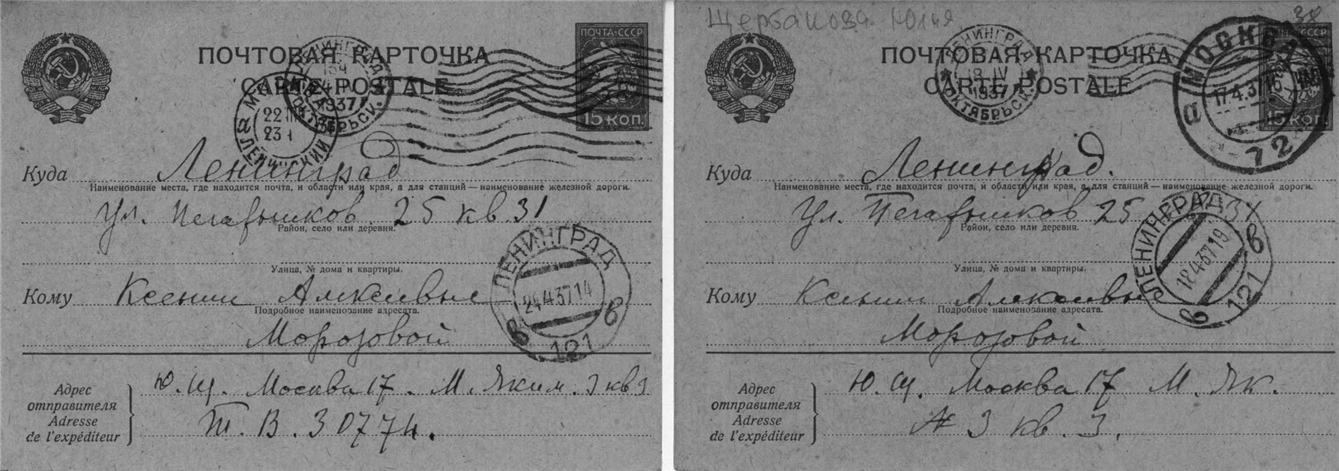 ПОЧТОВАЯ КАРТОЧКА
CARTE POSTALE
ПОЧТА-СССР
15 КОП.
ЛЕНИНГРАД
1937
ОКТЯБРЬСК.
22 III
23 1
ЛЕНИНСКИЙ
Куда Ленинград
Наименование места, где находится почта, и области или края, а для станций — наименование железной дороги.
Ул. Печатников 25 кв. 31
Район, село или деревня.
Улица, № дома и квартиры.
ЛЕНИНГРАД
24.4.37.14
в 121 в
Кому Ксении Алексеевне
Подробное наименование адресата.
Морозовой
Адрес
отправителя
Adresse
de l'expéditeur
Ю. Щ. Москва 17. М. Яким. 3 кв 3
Т. В. 30774.
Щербакова Юлия
38
ПОЧТОВАЯ КАРТОЧКА
CARTE POSTALE
15 КОП.
ЛЕНИНГРАД
18 IV
1937
ОКТЯБРЬСК.
МОСКВА
17.4.37
а 72
Куда Ленинград.
Наименование места, где находится почта, и области или края, а для станций — наименование железной дороги.
Ул. Печатников 25 31
Район, село или деревня.
Улица, № дома и квартиры.
ЛЕНИНГРАД
18.4.37.19
в 121 в
Кому Ксении Алексеевне
Подробное наименование адресата.
Морозовой
Адрес
отправителя
Adresse
de l'expéditeur
Ю. Щ. Москва 17 М. Як.
№ 3 кв. 3.